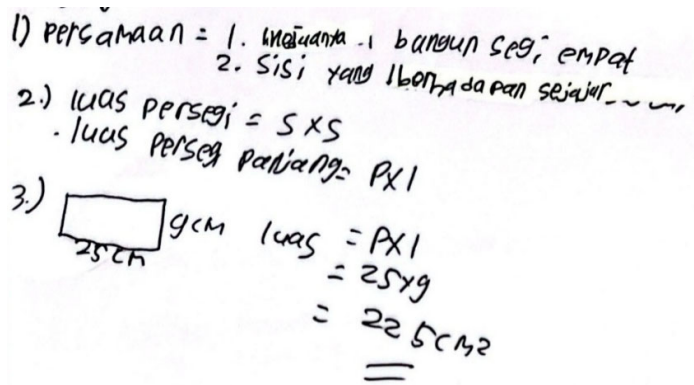 1) persamaan = 1. bangun segi empat
2. sisi yang berhadapan sejajar
2.) luas persegi = s x s
. luas perseg panjang = p x l
3.) 9 cm luas = p x l
25 cm
= 25 x 9
= 225 cm2